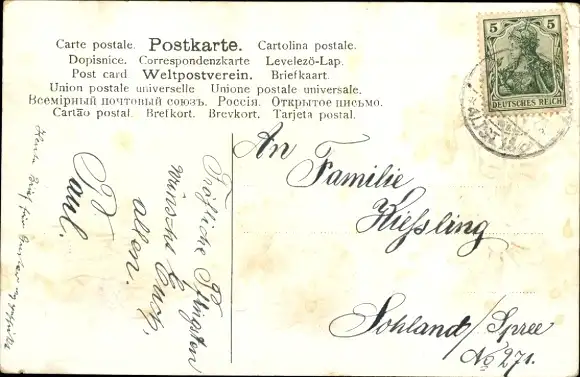 Carte postale. Postkarte. Cartolina postale.
Dopisnice. Correspondenzkarte Levelező-Lap.
Post card Weltpostverein. Briefkaart.
Union postale universelle Unione postale universale.
Всемірный почтовый союзъ. Россія. Открытое письмо.
Cartão postal. Brefkort. Brevkort. Tarjeta postal.
5 5
DEUTSCHES REICH
An
Familie
Kießling
Sohland/Spree
No 271.
Fröhliche Pfingsten
wünscht Euch
allen.
Paul.
Heute Brief für